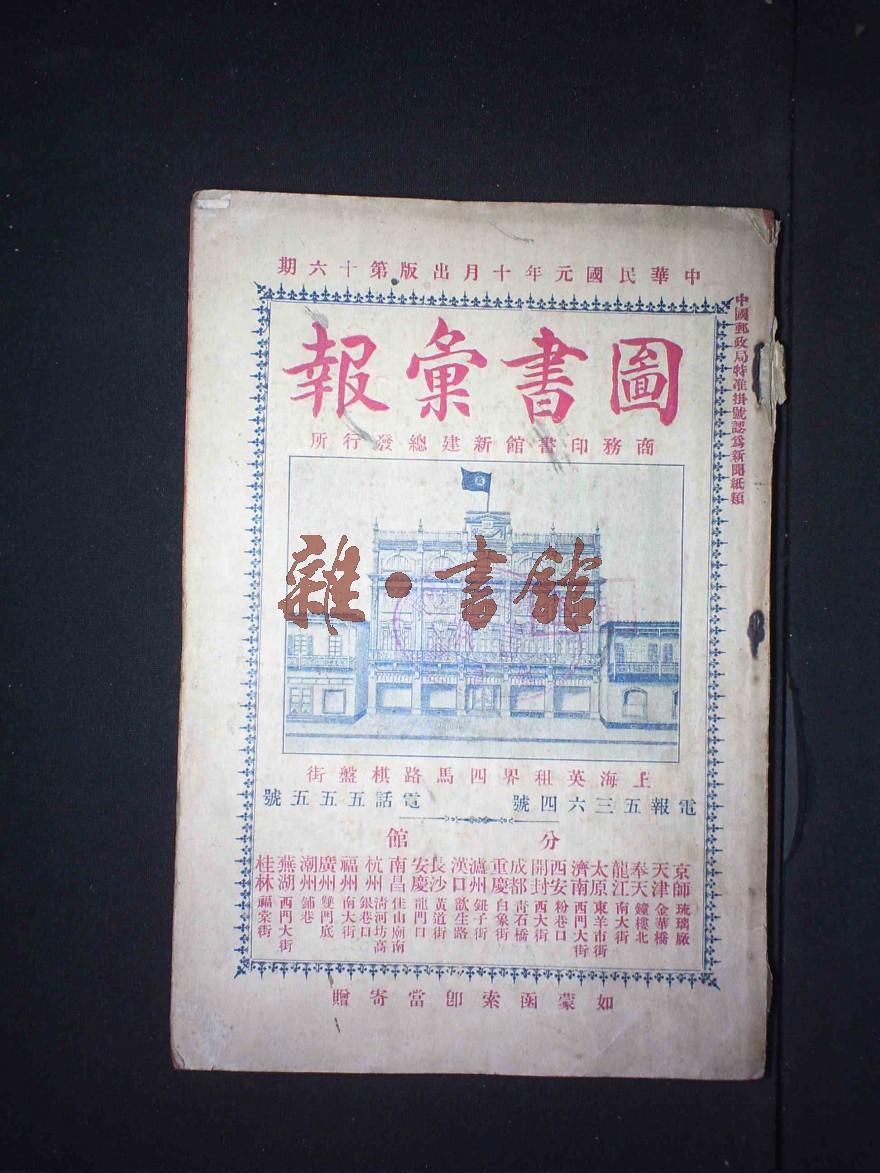 中華民國元年十月出版第十六期
中國郵政局特准掛號認爲新聞紙類
圖書彙報
商務印書館新建總發行所
雜·書館
上海英租界四馬路棋盤街
電報五三六四號
電話五五五五號
分館
京師 琉璃廠
天津 金華橋
奉天 鐘樓北
龍江 南大街
太原 東羊市街
濟南 西門大街
西安 粉巷口
開封 西大街
成都 青石橋
重慶 白象街
瀘州 鈕子街
漢口 歆生路
長沙 黃道街
安慶 龍門口
南昌 佳山廟南
杭州 淸河坊高銀巷口
福州 南大街
廣州 雙門底
潮州 鋪巷
蕪湖 西門大街
桂林 福棠街
如蒙函索卽當寄贈